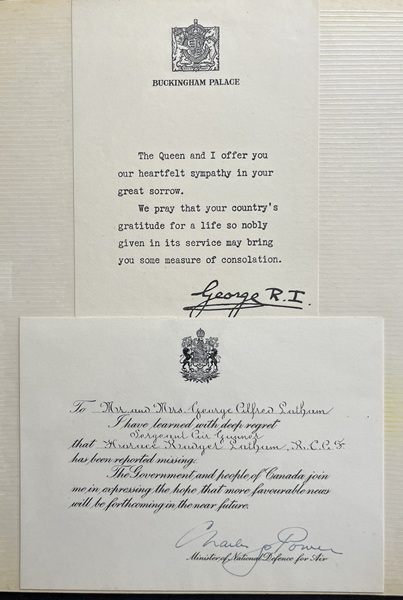 BUCKINGHAM PALACE
The Queen and I offer you
our heartfelt sympathy in your
great sorrow.
We pray that your country's
gratitude for a life so nobly
given in its service may bring
you some measure of consolation.
George R.I.
To Mr. and Mrs. George Alfred Latham
I have learned with deep regret
Sergeant Air Gunner
that Horace Latham, R.C.A.F.
has been reported missing.
The Government and people of Canada join
me in expressing the hope that more favourable news
will be forthcoming in the near future.
Charles G Power
Minister of National Defence for Air